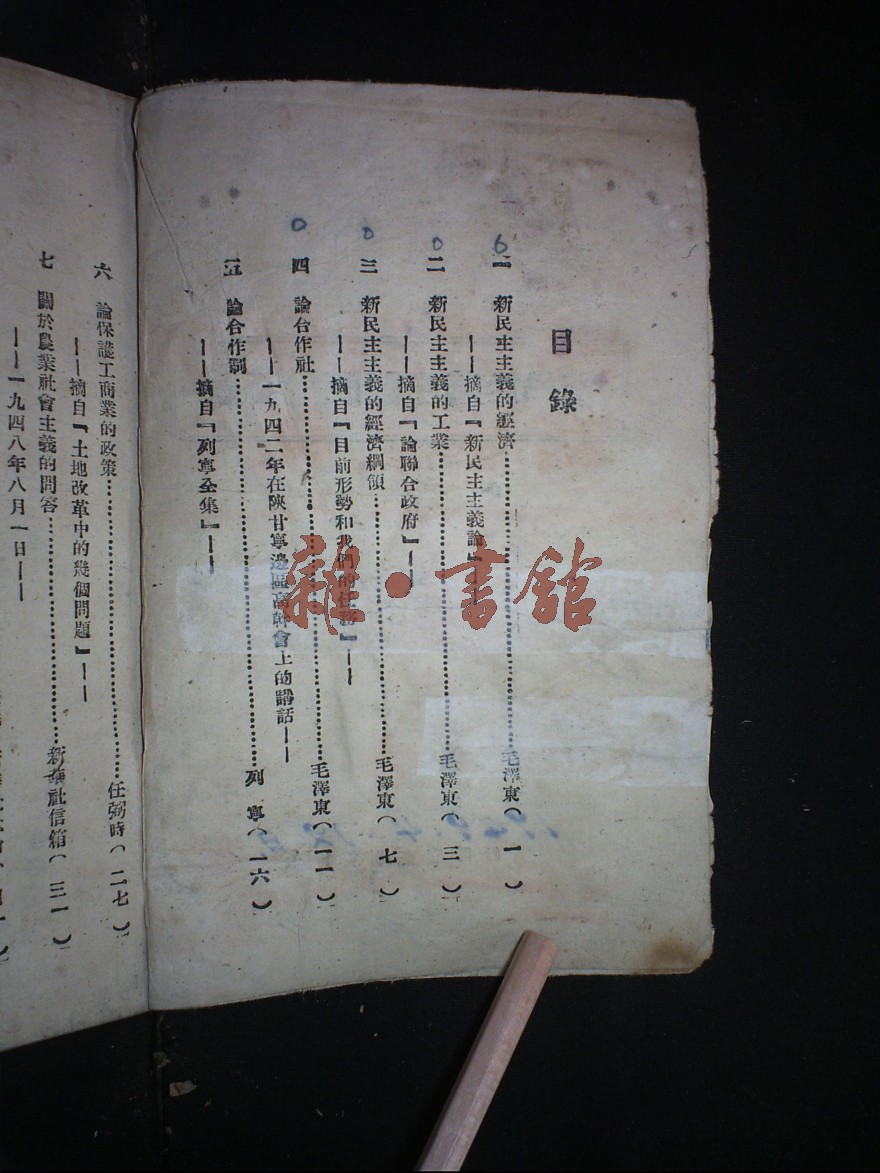 目錄
一 新民主主義的經濟……毛澤東(一)
——摘自『新民主主義論』
二 新民主主義的工業……毛澤東(三)
——摘自『論聯合政府』——
三 新民主主義的經濟綱領……毛澤東(七)
——摘自『目前形勢和我們的任務』——
四 論合作社……毛澤東(一一)
——一九四二年在陝甘寧邊區高幹會上的講話——
五 論合作制……列寧(一六)
——摘自『列寧全集』——
六 論保護工商業的政策……任弼時(二七)
——摘自『土地改革中的幾個問題』——
七 關於農業社會主義的問答……新華社信箱(三一)
——一九四八年八月一日——
雜·書館